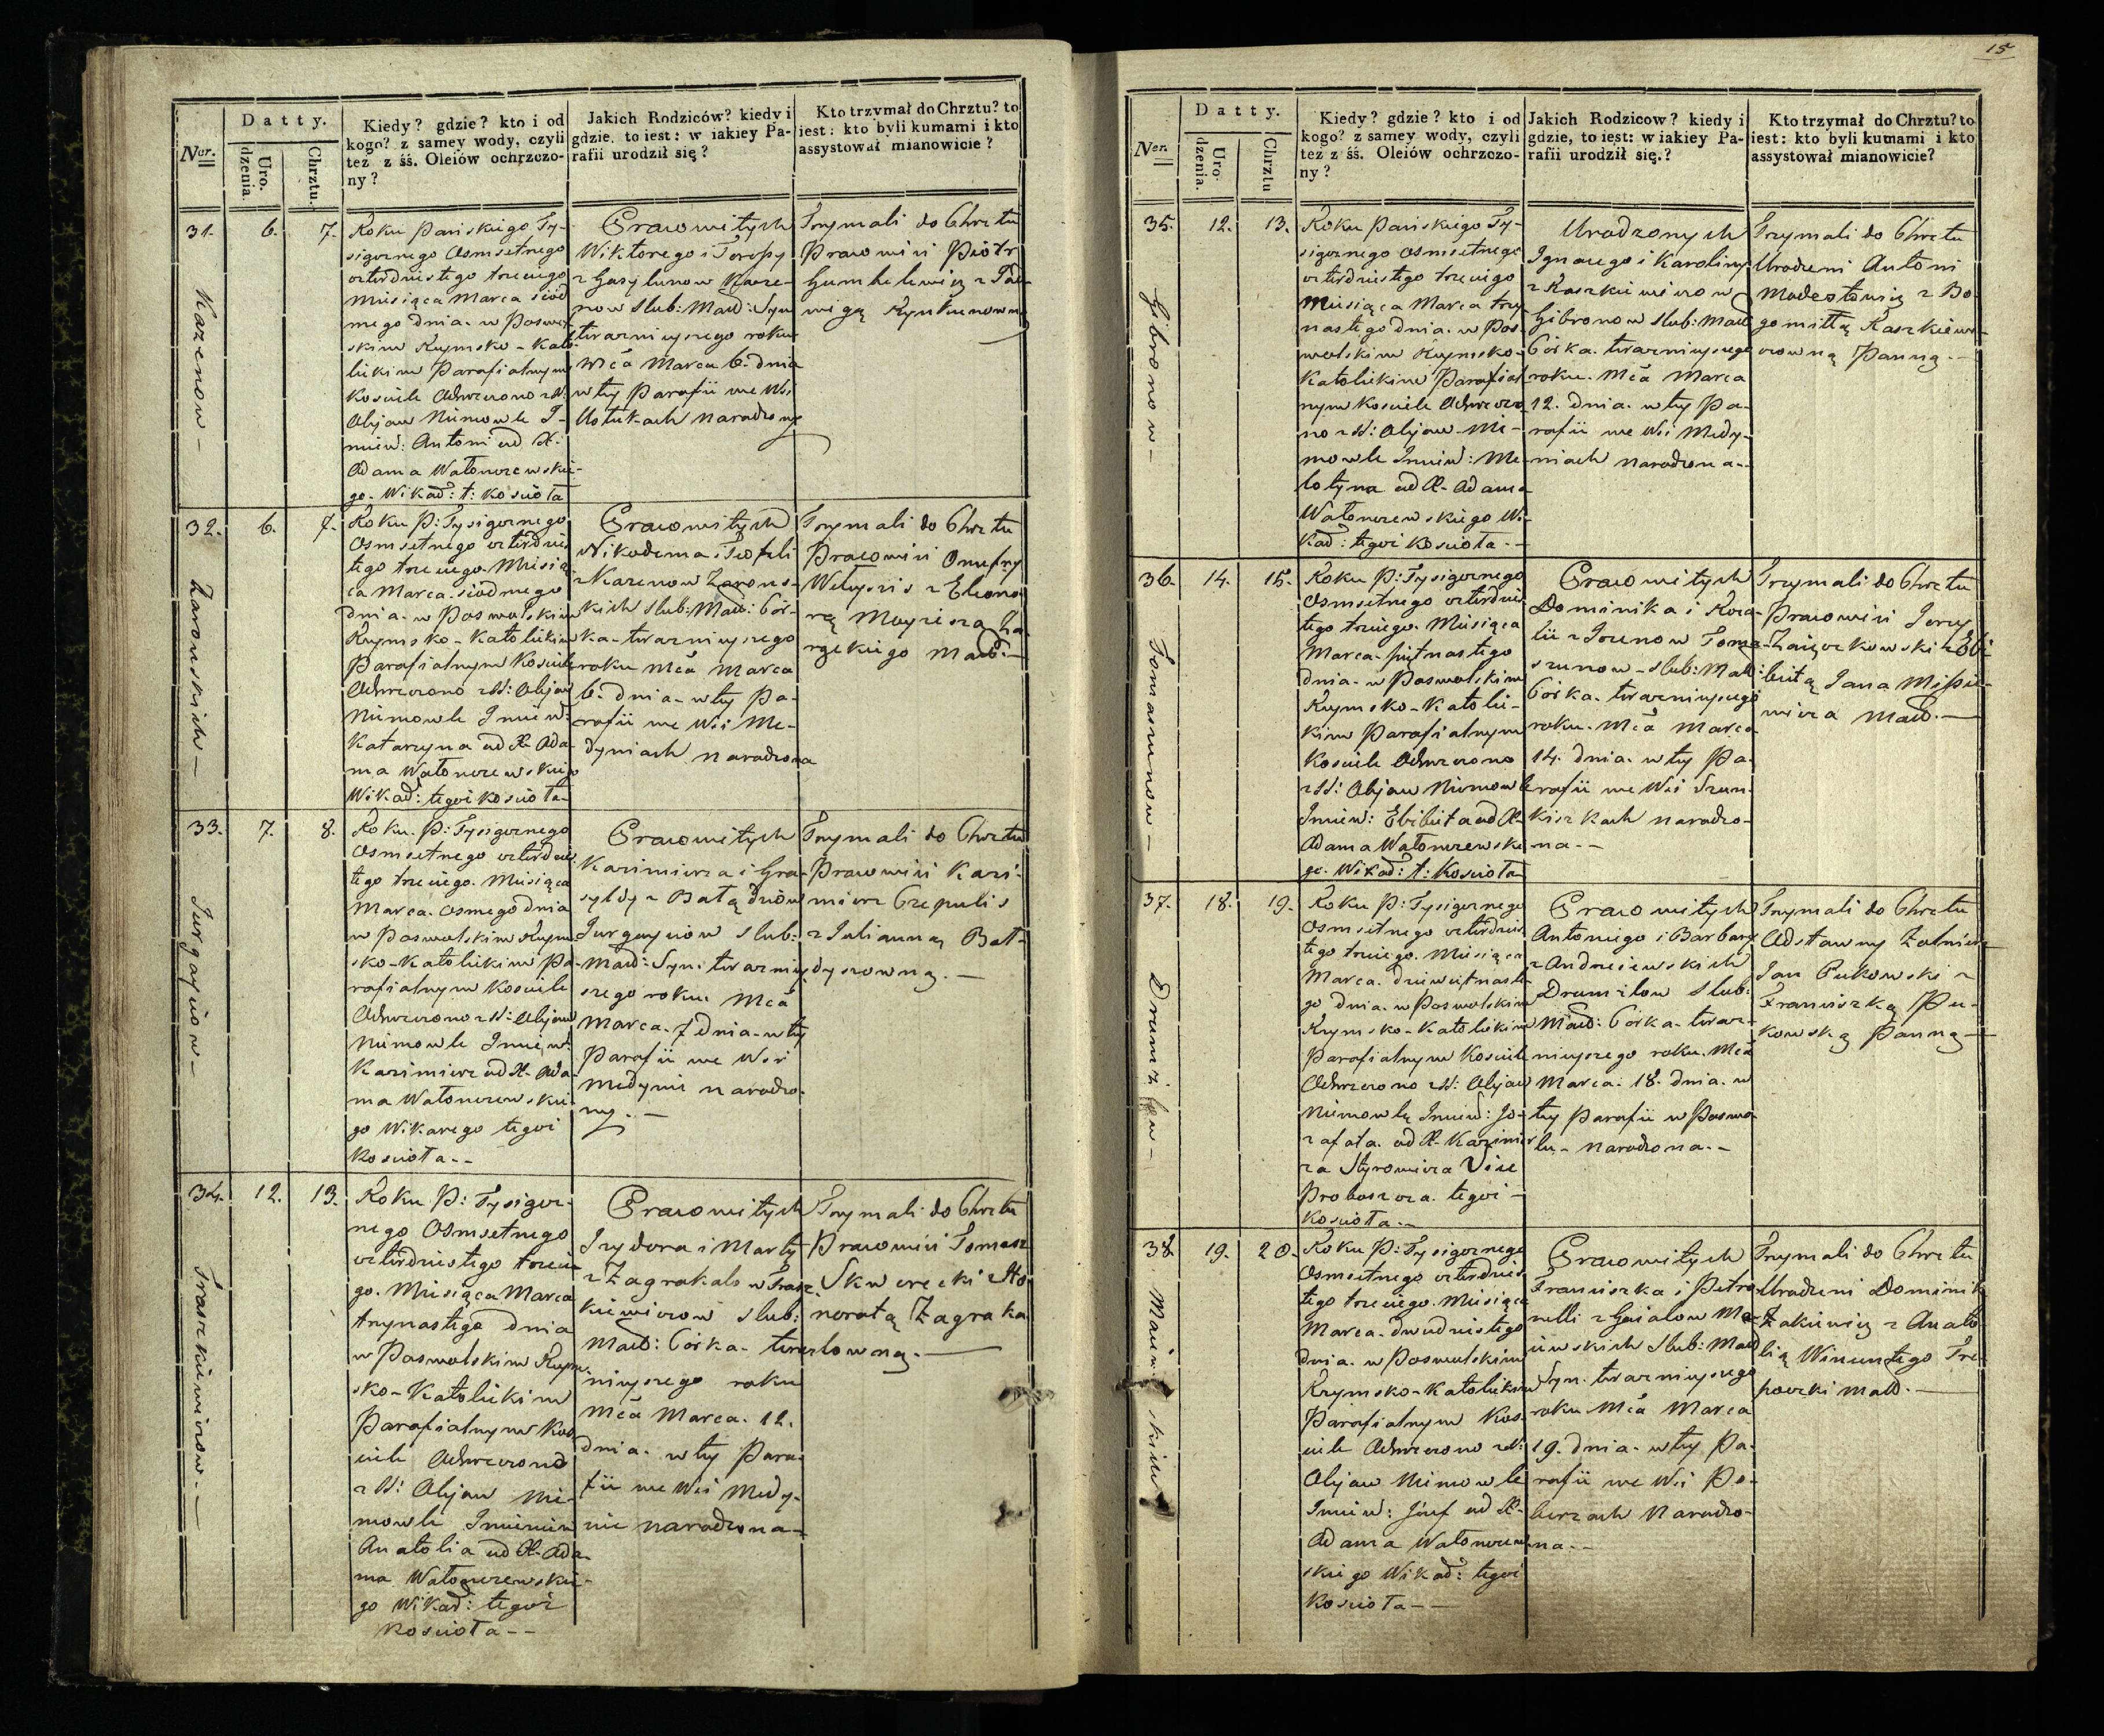 15
Datty.
Ner.
Uro.
dzenia.
Chrztu.
Kiedy? gdzie? kto i od
kogo? z samey wody, czyli
też z śś. Oleiów ochrzczo-
ny?
Jakich Rodziców? kiedy i
gdzie, to iest: w iakiey Pa-
rafii urodził się?
Kto trzymał do Chrztu? to
iest: kto byli kumami i kto
assystował mianowicie?
31.
Kazenow-
6.
7.
Roku Pańskiego Ty-
siącznego Osmsetnego
czterdziestego trzeciego
Miesiąca Marca siód
mego dnia. w Poswol-
skim Rzymsko-Kato-
lickim Parafialnym
Kościele Ochrzczono z SS:
Olejow Niemowle I-
mien: Antoni od X.
Adama Wałonczewskie-
go. Wikar: t: Kościoła
Pracowitych
Wiktorego i Teressy
z Gasylunow Kaze-
now Slub: Małż: Syn
terazniejszego roku
Mca Marca 6. dnia
w tej Parafii we Wsi
narodzony
Trzymali do Chrztu
Pracowici Piotr
Gumbelewicz z
32.
Zaronskich-
6.
7.
Roku P: Tysiącznego
Osmsetnego czterdzies
tego trzeciego. Miesią
ca Marca. siódmego
dnia. w Poswolskim
Rzymsko-Katolickim
Parafialnym Kościele
Ochrzczono z SS: Olejow
Niemowle Imien:
Katarzyna od X. Ada-
ma Wałonczewskiego
Wikar: tegoż Kościoła-
Pracowitych
Nikodema i Teofili
z Kazenow Zarons-
kich Slub: Małż: Cór-
ka. terazniejszego
roku Mca Marca
6. dnia. w tej Pa-
rafii we Wsi Me-
dyniach narodzona
Trzymali do Chrztu
Pracowici Onufry
z Eleono
rą
Małż:-
33.
Jurgajciow-
7.
8.
Roku. P: Tysiącznego
Osmsetnego czterdzies
tego trzeciego. Miesiąca
Marca. Osmego dnia
w Poswolskim Rzym
sko-Katolickim Pa-
rafialnym Kościele
Ochrzczono z SS: Olejow
Niemowle Imien:
Kazimierz od X. Ada-
ma Wałonczewskie-
go Wikarego tegoż
Kościoła--
Pracowitych
Kazimierza i Gra-
syldy z Bałądziow
Jurgajciow Slub:
Małż: Syn: terazniej
szego roku. Mca
Marca. 7 dnia. w tej
Parafii we Wsi
Medynie narodzo-
ny.-
Trzymali do Chrztu
Pracowici Kazi-
mierz Czepulis
z Julianną Bał-
dyszowną.-
34.
Traszkiewiczow.-
12.
13.
Roku P: Tysiącz-
nego Osmsetnego
czterdziestego trzecie
go. Miesiąca Marca
trzynastego dnia
w Poswolskim Rzym-
sko-Katolickim
Parafialnym Koś-
ciele Ochrzczono
z SS: Olejow Nie-
mowle Imieniem
Anatolia od X. Ada-
ma Wałonczewskie-
go Wikar: tegoż
Kościoła--
Pracowitych
Izydora i Marty
z Zagrakalow Trasz-
kiewiczow Slub:
Małż: Córka- teraz
niejszego roku
Mca Marca. 12.
dnia. w tej Para-
fii we Wsi Medy-
nie narodzona-
Trzymali do Chrztu
Pracowici Tomasz
Skwerecki z Ho
noratą Zagraka
lowną.-
Datty.
Ner.
Uro-
dzenia.
Chrztu
Kiedy? gdzie? kto i od
kogo? z samey wody, czyli
też z śś. Oleiów ochrzczo-
ny?
Jakich Rodzicow? kiedy i
gdzie, to iest: w iakiey Pa-
rafii urodził się.?
Kto trzymał do Chrztu? to
iest: kto byli kumami i kto
assystował mianowicie?
35.
Gibronow-
12.
13.
Roku Pańskiego Ty-
siącznego Osmsetnego
czterdziestego trzeciego
Miesiąca Marca trzy
nastego dnia. w Pos-
wolskim Rzymsko-
Katolickim Parafial
nym Kościele Ochrzczo
no z SS: Olejow. Nie-
mowle Imien: Me-
lotyna od X. Adama
Wałonczewskiego Wi-
kar: tegoż Kościoła.-
Urodzonych
Ignacego i Karoliny
z Raszkiewiczow
Gibronow Slub: Małż
Córka. terazniejszego
roku. Mca Marca
12. dnia. w tej Pa-
rafii we Wsi Medy-
niach narodzona--
Trzymali do Chrztu
Urodzeni Antoni
Modestowicz z Bo-
gomiłłą Raszkiewi-
czowną Panną.-
36.
Tomaszunow-
14.
15.
Roku P: Tysiącznego
Osmsetnego czterdzies
tego trzeciego. Miesiąca
Marca. piętnastego
dnia. w Poswolskim
Rzymsko-Katolic-
kim Parafialnym
Kościele Ochrzczono
z SS: Olejow Niemowle
Imien: Elżbieta od X.
Adama Wałonczewskie
go. Wikar: t: Kościoła
Pracowitych
Dominika i Roza-
lii z Tomo
szunow- Slub: Małż:
Córka. terazniejszego
roku. Mca Marca
14. dnia. w tej Pa-
rafii we Wsi Szun-
kiszkach narodzo-
na--
Trzymali do Chrztu
Pracowici Jerzy
Zajączkowski z Elż
bietą Jana
Małż.-
37.
18.
19.
Roku P: Tysiącznego
Osmsetnego czterdzies
tego trzeciego. Miesiąca
Marca. dziewiętnaste
go dnia. w Poswolskim
Rzymsko-Katolickim
Parafialnym Kościele
Ochrzczono z SS: Olejow
Niemowlę Imien: Jo-
zafata. od X. Kazimier
za Styrowicza Vice
Proboszcza. tegoż-
Kościoła.-
Pracowitych
Antoniego i Barbary
z Andrziewskich
Drumilow Slub:
Małż: Córka. teraz-
niejszego roku. Mca
Marca. 18. dnia. w
tej Parafii w Poswo-
lu. narodzona.-
Trzymali do Chrztu
Odstawny Żołnierz
Jan Pukowski z
Franciszką Pu-
kowską Panną-
38.
19.
20.
Roku P: Tysiącznego
Osmsetnego czterdzies
tego trzeciego. Miesiąca
Marca. dwudziestego
dnia. w Poswolskim
Rzymsko-Katolickim
Parafialnym Koś-
ciele Ochrzczono z SS:
Olejow Niemowle
Imien: Józef od X.
Adama Wałonczew
skiego Wikar: tegoż
Kościoła--
Pracowitych
Franciszka i Petro
nelli z Gaialow Ma-
ciewskich Slub: Małż
Syn. terazniejszego
roku Mca Marca
19. dnia. w tej Pa-
rafii we Wsi Po-
berzach Narodzo-
na.-
Trzymali do Chrztu
Urodzeni Dominik
Zakiewicz z Anato
lią Wincentego
Małż.-